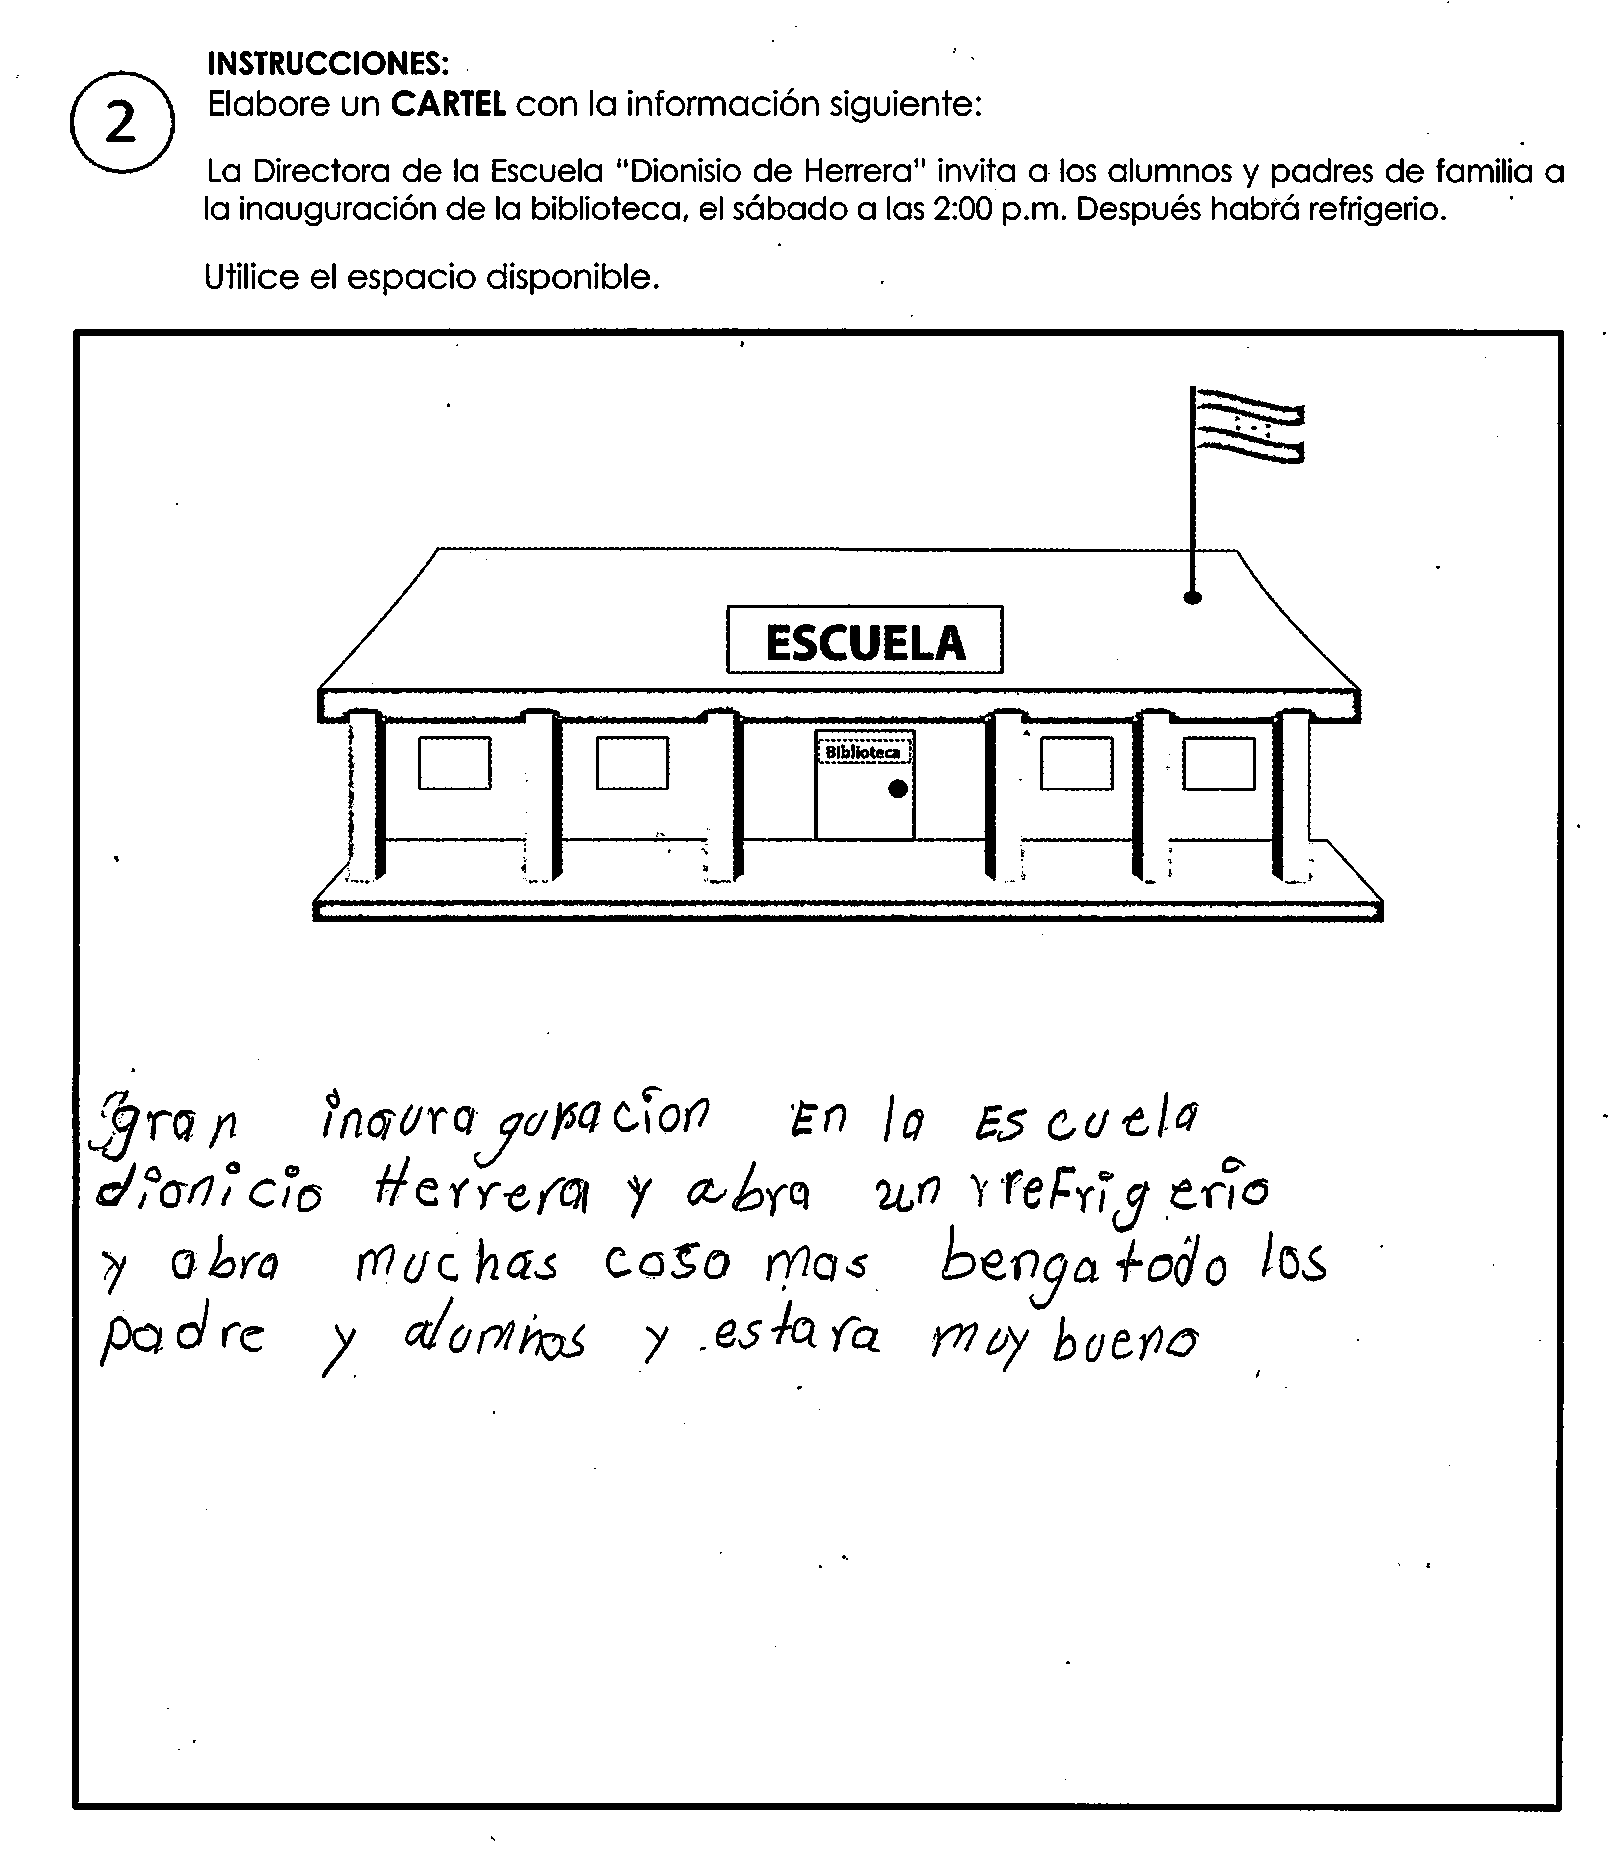 INSTRUCCIONES:
2
Elabore un CARTEL con la información siguiente:
La Directora de la Escuela "Dionisio de Herrera" invita a los alumnos y padres de familia a
la inauguración de la biblioteca, el sábado a las 2:00 p.m. Después habrá refrigerio.
Utilice el espacio disponible.
ESCUELA
Biblioteca
gran inaura guracion En la Escuela
dionicio Herrera y abra un rrefrigerio
y abra muchas coso mas benga todo los
padre y alumnos y estara muy bueno